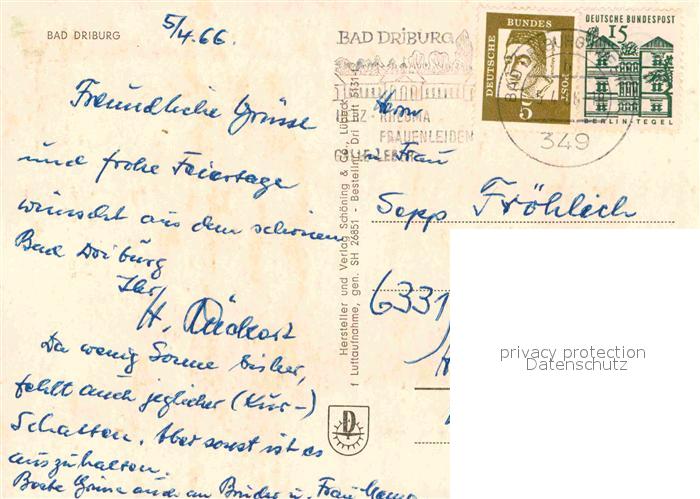 BAD DRIBURG
5/4.66.
Freundliche Grüsse
und frohe Feiertage
wünscht aus dem schönen
Bad Driburg
Ihr
H.
Da wenig Sonne bisher,
fehlt auch jeglicher (Kur-)
Schatten. Aber sonst ist es
auszuhalten.
Beste Grüsse auch an Bruder u. Frau
Hersteller und Verlag Schöning & Co., Lübeck
† Luftaufnahme, gen. SH 26851 - Bestellnr. Dri
BAD DRIBURG
HERZ - RHEUMA
FRAUENLEIDEN
GALLE-LEBER
DEUTSCHE BUNDESPOST
5
DEUTSCHE BUNDESPOST
15
BERLIN-TEGEL
349
Herrn
u. Frau
Sepp Fröhlich
6331
D
privacy protection
Datenschutz